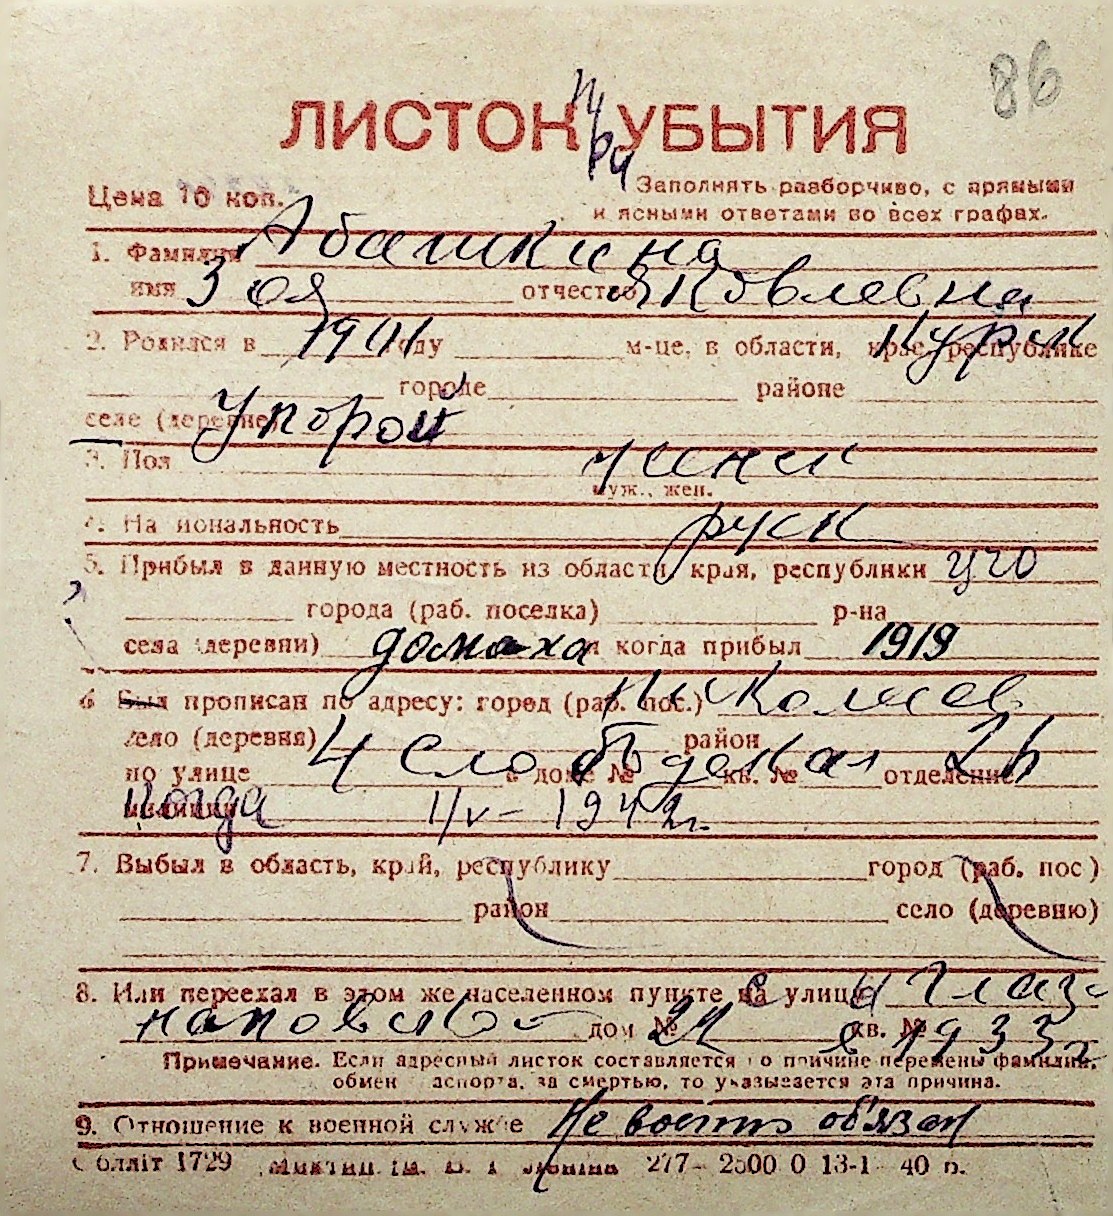 86
ЛИСТОК УБЫТИЯ
Цена 10 коп.
Заполнять разборчиво, с прямыми
и ясными ответами во всех графах.
1. Фамилия Абашкина
имя Зоя отчество Яковлевна
2. Родился в 1901 году м-це, в области, крае, республике Курск
городе районе
селе (деревне) Укорой
3. Пол женск
муж., жен.
4. Национальность руск
5. Прибыл в данную местность из области, края, республики
города (раб. поселка) р-на
села (деревни) домаха и когда прибыл 1919
6 Был прописан по адресу: город (раб. пос.) Николаев
село (деревня) район
по улице 4 Слободская в доме № кв. № отделение
милиции Когда 1/V - 1942 г.
7. Выбыл в область, край, республику город (раб. пос)
район село (деревню)
8. Или переехал в этом же населенном пункте на улицу
дом № 22 кв. № с 1933 г
Примечание. Если адресный листок составляется по причине перемены фамилии,
обмен паспорта, за смертью, то указывается эта причина.
9. Отношение к военной службе Не воен обязан
Облліт 1729 277-2500 0 13-1 40 р.